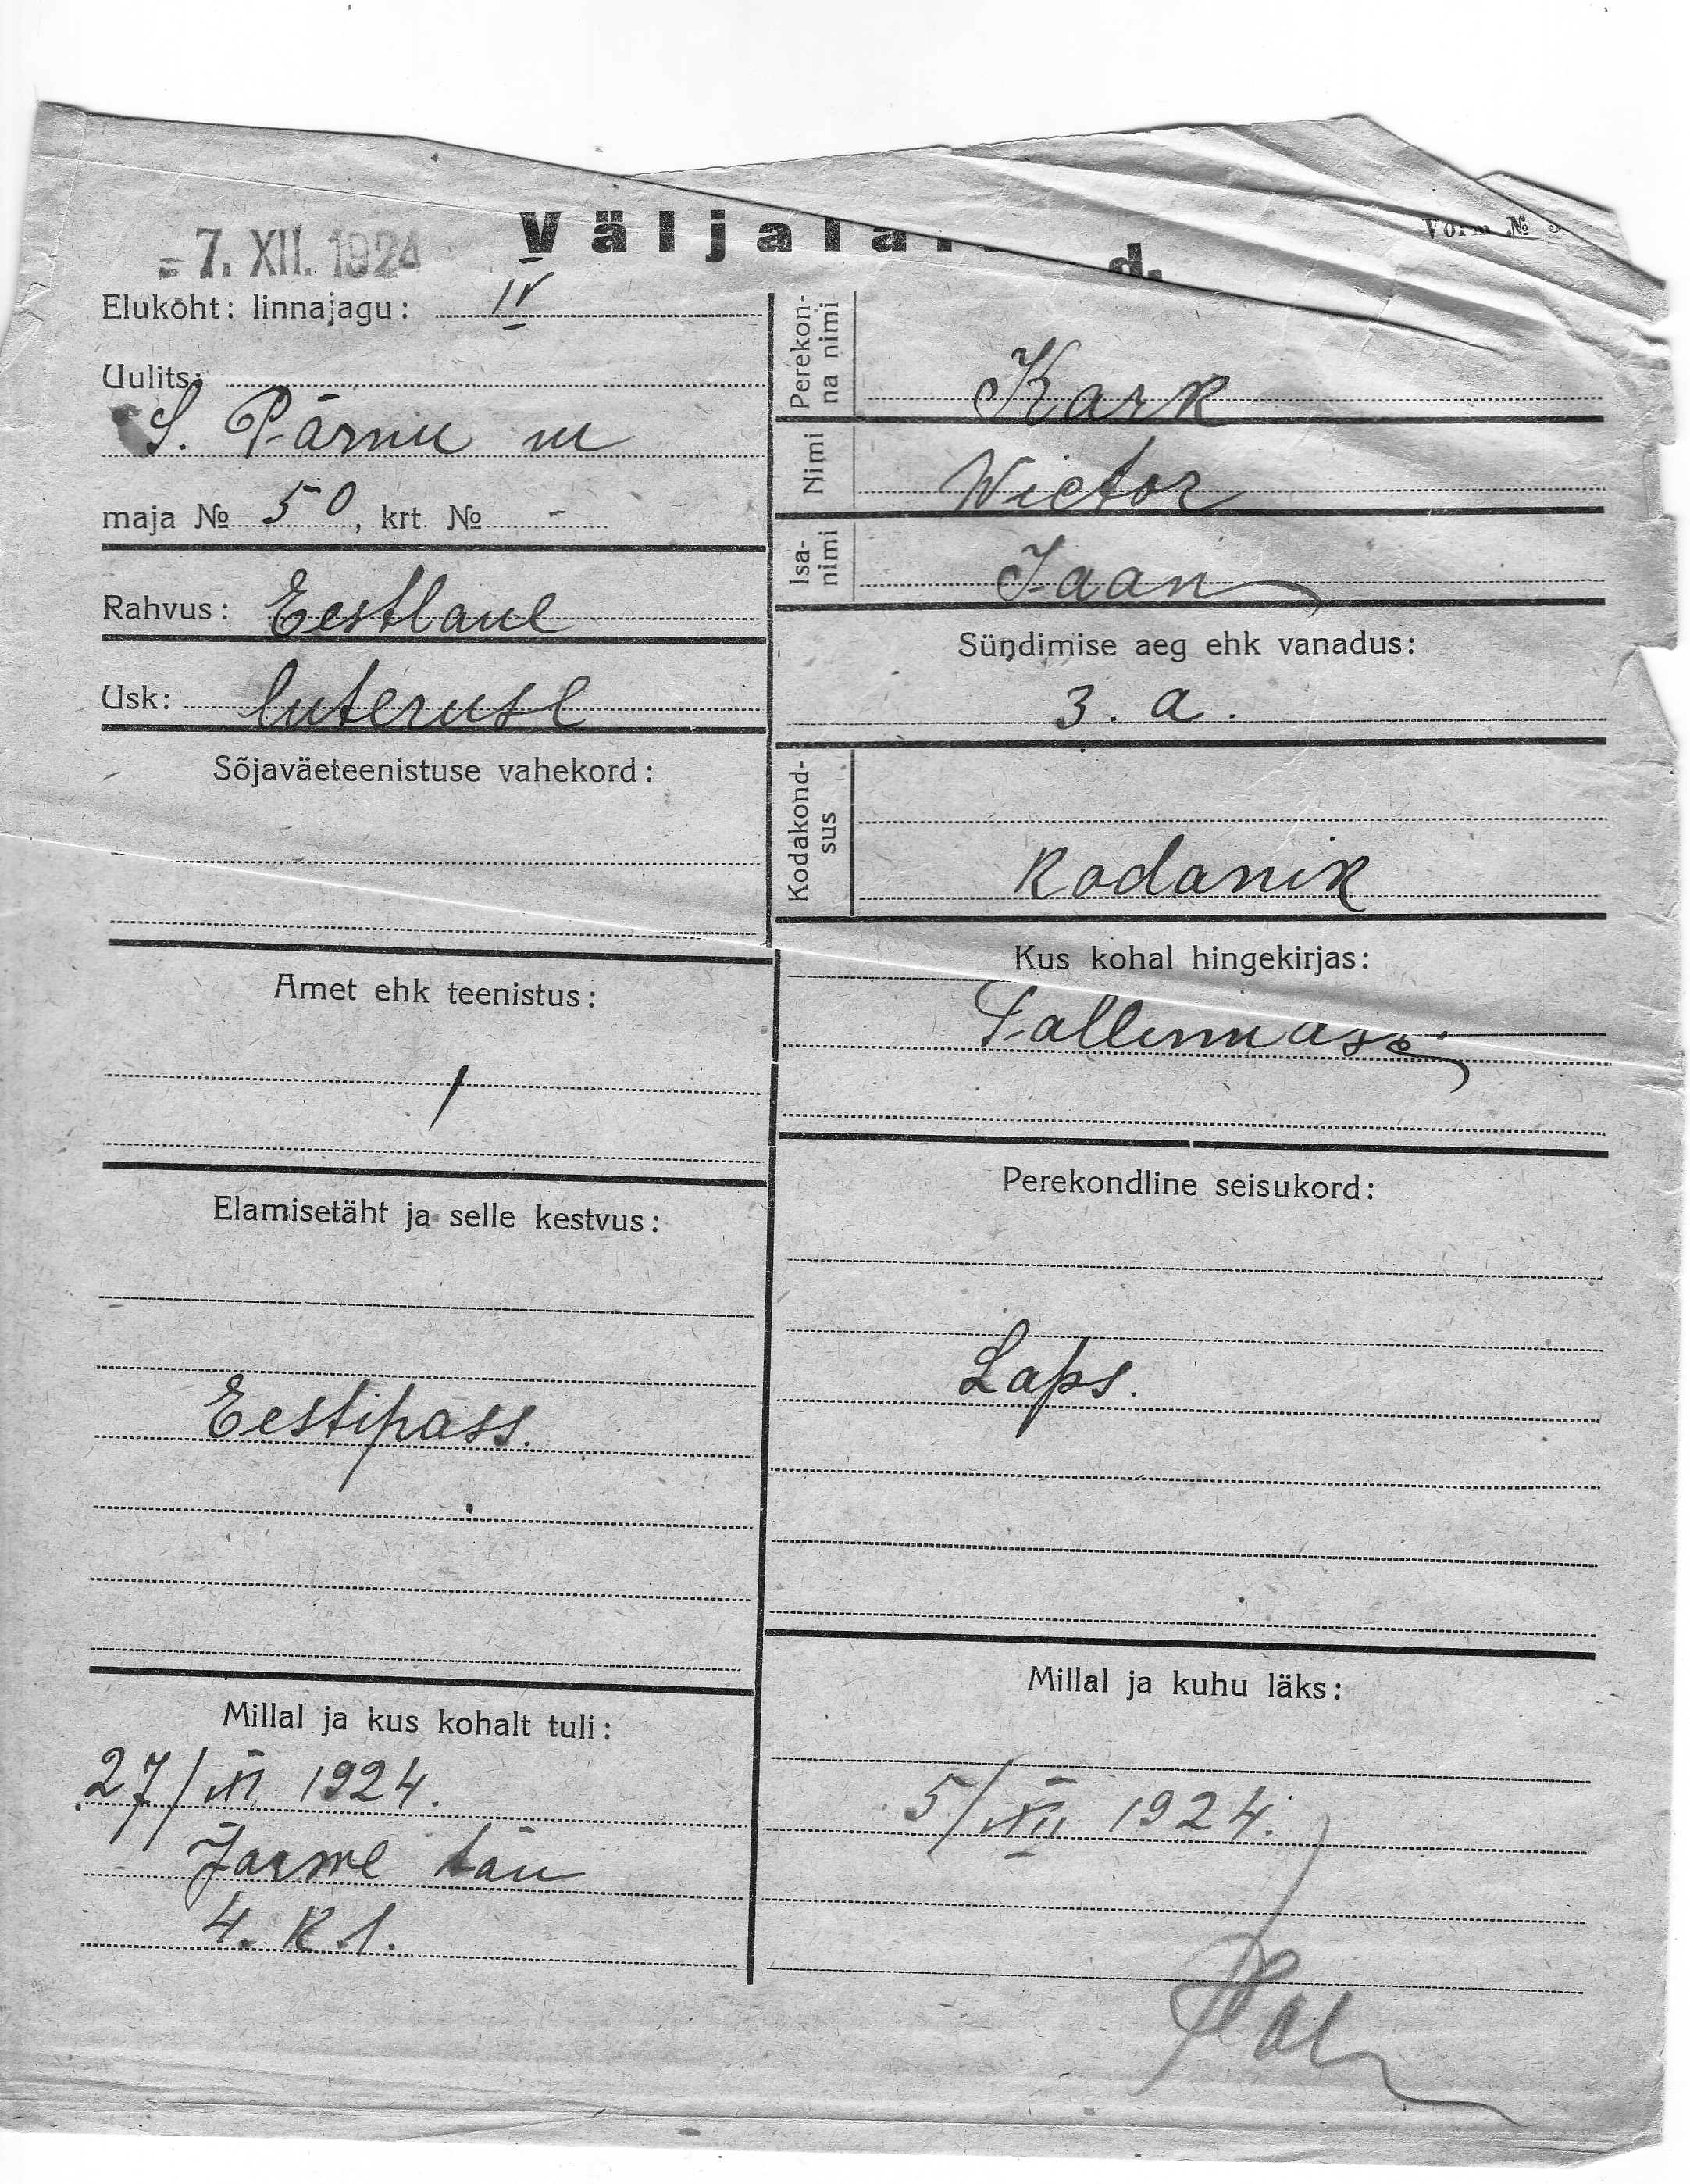 = 7. XII. 1924
Vorm №
Elukoht: linnajagu: IV
Uulits:
S. Pärnu m
maja № 50, krt. № -
Rahvus: Eestlane
Usk: luteruse
Sõjaväeteenistuse vahekord:
Amet ehk teenistus:
/
Elamisetäht ja selle kestvus:
Eestipass.
Millal ja kus kohalt tuli:
27/XI 1924.
Jarwe tän
4. k. 1.
Perekon-
na nimi
Kark
Nimi Wictor
Isa-
nimi
Jaan
Sündimise aeg ehk vanadus:
3. a.
Kodakond-
sus
Kodanik
Kus kohal hingekirjas:
Tallinnas
Perekondline seisukord:
Laps.
Millal ja kuhu läks:
5/XII 1924.